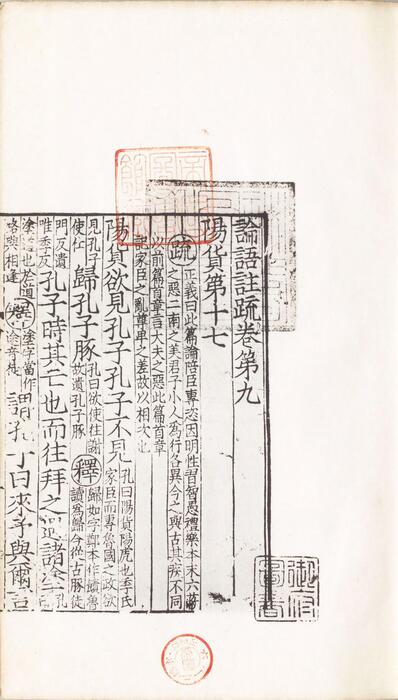 論語註疏卷第九
陽貨第十七
疏正義曰此篇論陪臣專恣因明性習智愚禮樂本末六蔽
之惡二南之美君子小人為行各異今之與古其疾不同
以前篇首章言大夫之惡此篇首章
記家臣之亂尊卑之差故以相次也
陽貨欲見孔子孔子不見
孔曰陽貨陽虎也季氏
家臣而專魯國之政欲
見孔子
使仕
歸孔子豚
孔曰欲使往謝
故遺孔子豚
釋
歸如字鄭本作饋魯
讀為歸今從古豚徒
門反遺
唯季反
孔子時其亡也而往拜之遇諸塗
孔
塗道也於道
路與相逢
釋
塗字當作
途音徒
謂孔子曰來予與爾言
御府
圖書